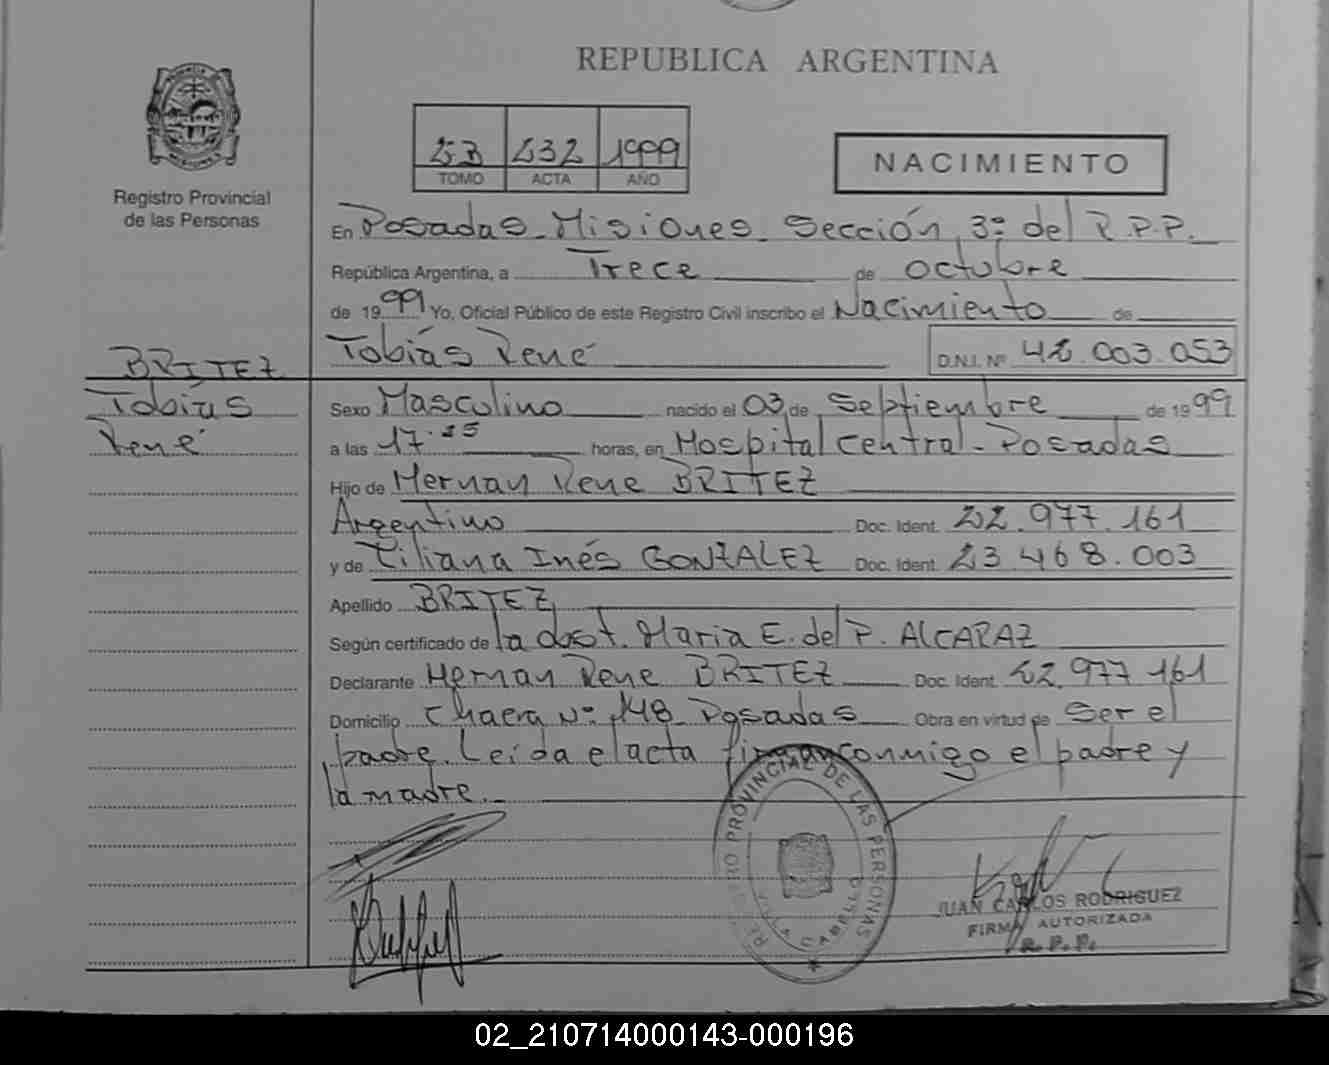 REPUBLICA ARGENTINA
Registro Provincial
de las Personas
232 1999
TOMO ACTA AÑO
NACIMIENTO
En Posadas - Misiones - Sección 3ª del R.P.P.
República Argentina, a Trece de octubre
de 1999 Yo, Oficial Público de este Registro Civil inscribo el Nacimiento de
Tobías René D.N.I. Nº 42.003.053
BRITEZ
Tobías
René
Sexo Masculino nacido el 03 de Septiembre de 1999
a las horas, en Hospital Central - Posadas
Hijo de Hernan Rene BRITEZ
Argentino Doc. Ident. 22.977.161
y de Liliana Inés GONZALEZ Doc. Ident. 23.468.003
Apellido BRITEZ
Según certificado de la obst. Maria E. del P. ALCARAZ
Declarante Hernan Rene BRITEZ Doc. Ident. 22.977.161
Domicilio Chacra Nº 148 Posadas Obra en virtud de Ser el
padre. Leída el acta firman conmigo el padre y
la madre.-
REGISTRO PROVINCIAL DE LAS PERSONAS
JUAN CARLOS RODRIGUEZ
FIRMA AUTORIZADA
R.P.P.
02_210714000143-000196